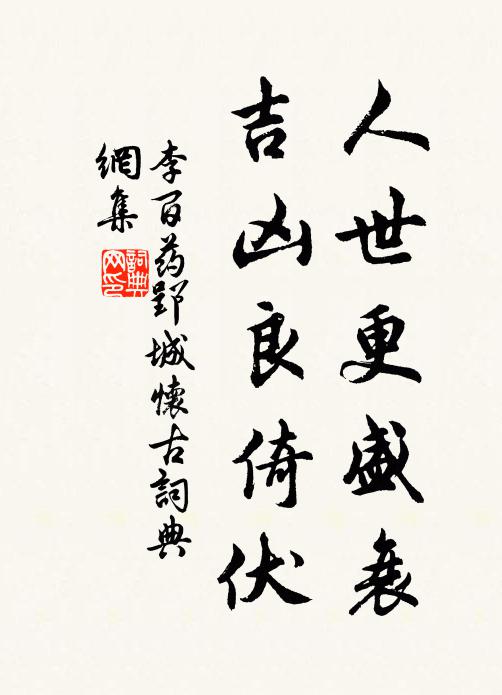 人世更盛衰
吉凶良倚伏
李百药郢城懷古詞典
網集
詞典
网印